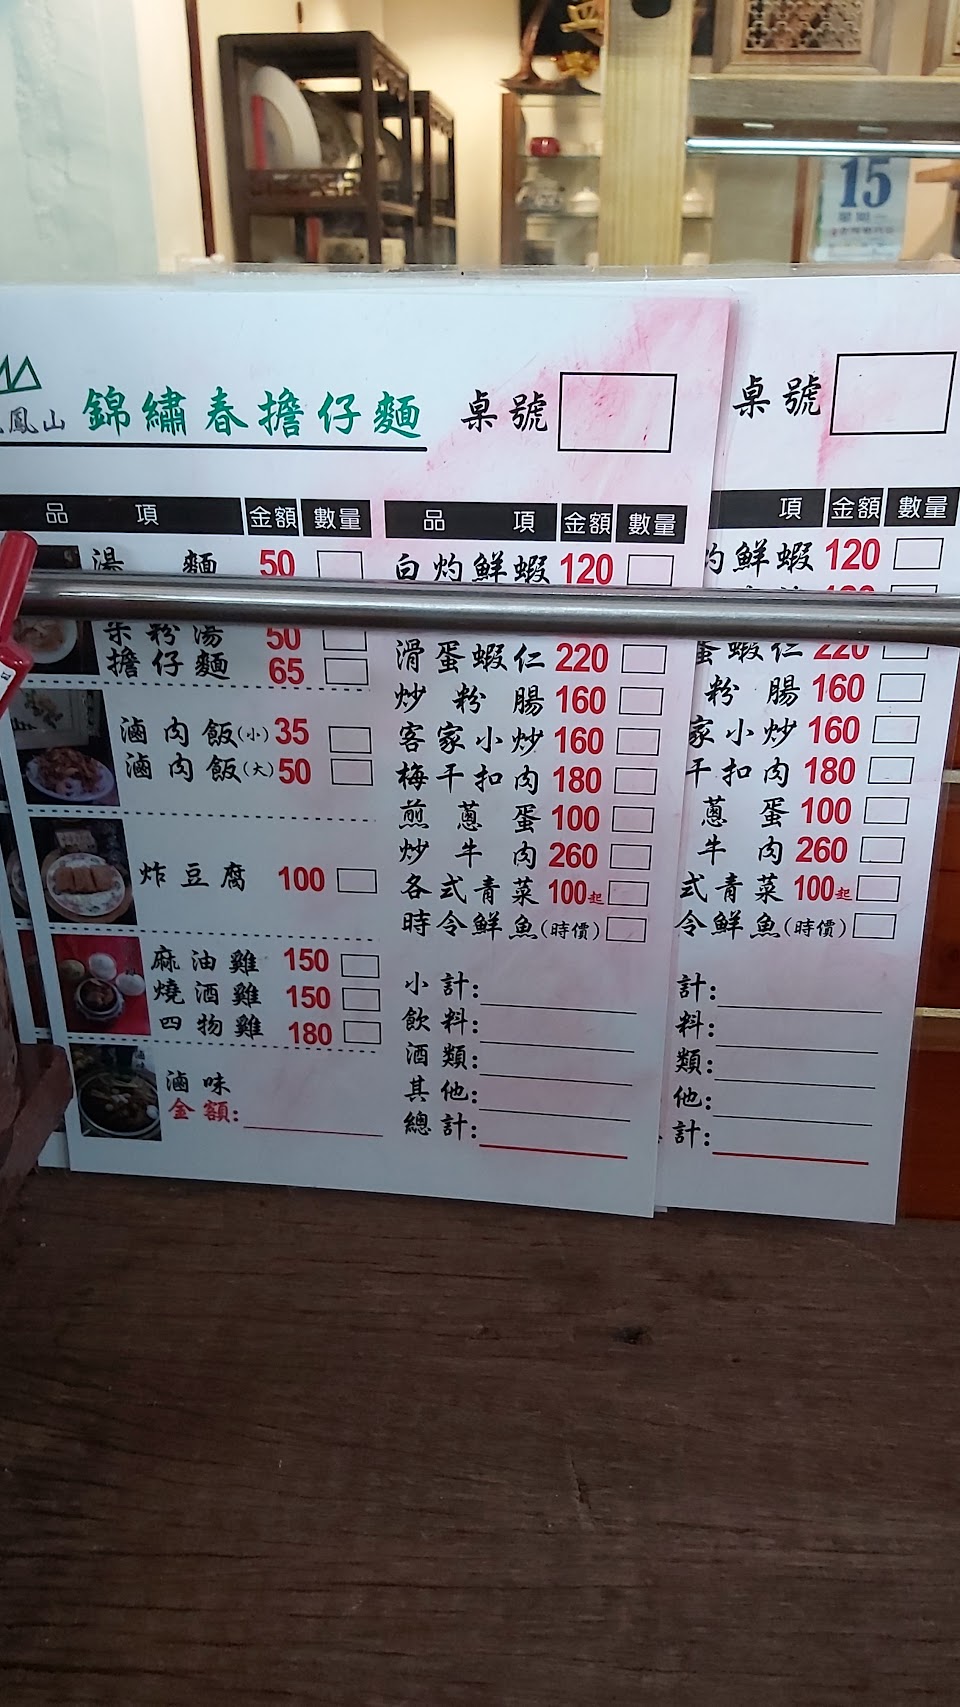 15
鳳山 錦繡春擔仔麵 桌號
品項 金額 數量
湯麵 50
粄粉湯 50
擔仔麵 65
滷肉飯(小) 35
滷肉飯(大) 50
炸豆腐 100
麻油雞 150
燒酒雞 150
四物雞 180
滷味
金額:
品項 金額 數量
白灼鮮蝦 120
滑蛋蝦仁 220
炒粉腸 160
客家小炒 160
梅干扣肉 180
煎蔥蛋 100
炒牛肉 260
各式青菜 100起
時令鮮魚(時價)
小計:
飲料:
酒類:
其他:
總計:
桌號
項 金額 數量
灼鮮蝦 120
蛋蝦仁 220
粉腸 160
家小炒 160
干扣肉 180
蔥蛋 100
牛肉 260
式青菜 100起
令鮮魚(時價)
計:
料:
類:
他:
計: